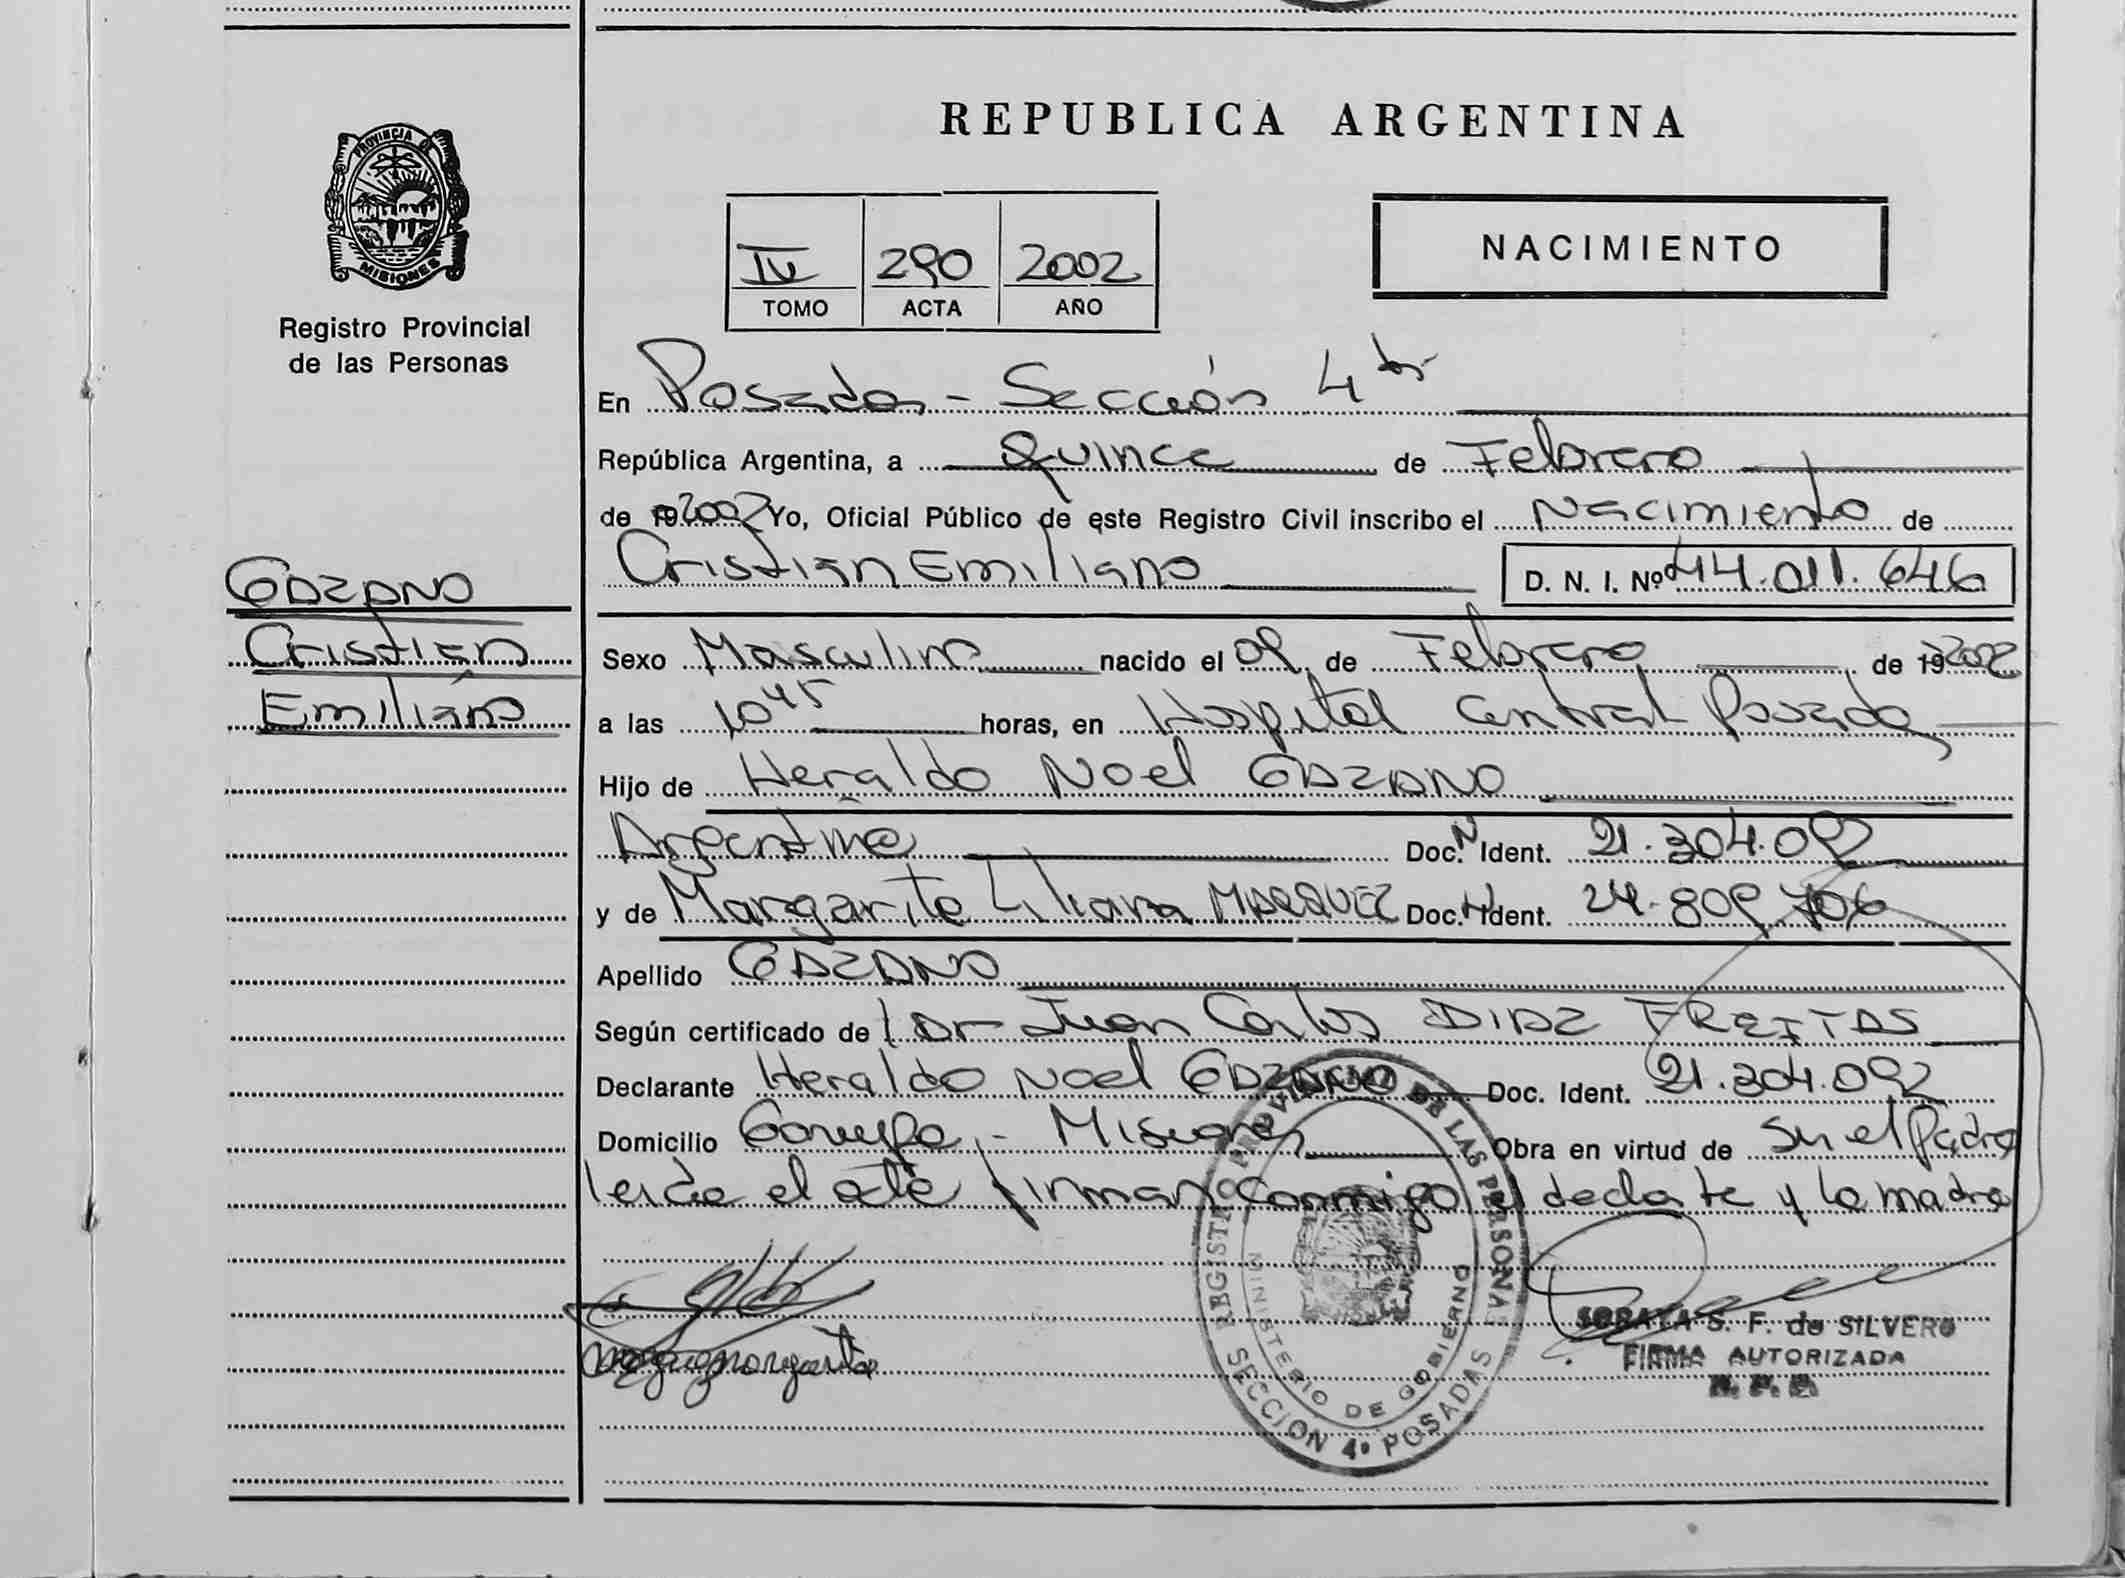 REPUBLICA ARGENTINA
PROVINCIA DE
MISIONES
Registro Provincial
de las Personas
IV 290 2002
TOMO ACTA AÑO
NACIMIENTO
En Posadas - Sección 4
República Argentina, a Quince de Febrero
de 192002 Yo, Oficial Público de este Registro Civil inscribo el Nacimiento de
Cristian Emiliano D. N. I. Nº 44.011.646
GAZANO
Cristian
Emiliano
Sexo Masculino nacido el 09 de Febrero de 192002
a las 10 45 horas, en Hospital Central Posadas
Hijo de Heraldo Noel GAZANO
Argentina Doc. N Ident. 21.304.092
y de Margarita Liliana MARQUEZ Doc. N Ident. 24.809.706
Apellido GAZANO
Según certificado de Dr Juan Carlos DIAZ FREITAS
Declarante Heraldo Noel GAZANO Doc. Ident. 21.304.092
Domicilio Garupa - Misiones Obra en virtud de Su el Padre
leida el acta firman conmigo el declate y la madre
REGISTRO PROVINCIAL DE LAS PERSONAS
MINISTERIO DE GOBIERNO
SECCION 4ª POSADAS
SORAYA S. F. de SILVERO
FIRMA AUTORIZADA